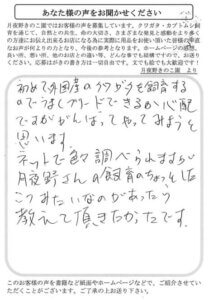 あなた様の声をお聞かせください
月夜野きのこ園ではお客様の声を募集しています。クワガタ・カブトムシ飼
育を通じて、自然との共生、命の大切さ、さまざまな発見と感動をより多く
の方達にお伝え出来るお店になる為に実際に用品をお使い頂いた皆様の率直
なお声が何よりの力となり、今後の参考となります。ホームページの感想、
良い点、悪い点、他のお店との違い等、どんな事でも結構ですので、お送り
ください。応募はがきの書き方は一切自由です。文でも絵でも大歓迎です!
月夜野きのこ園 より
初めて外国産のクワガタを飼育する
のでうまくブリードできるか心配
ですががんばってやってみようと
思います。
ネットで色々調べられますが
月夜野さんの飼育のちょっとした
こつみたいなのがあったら
教えて頂きたかったです。
このお客様の声を書籍など紙面やホームページなどで、ご紹介させてい
ただくことがございます。ご了承の上お送り下さい。